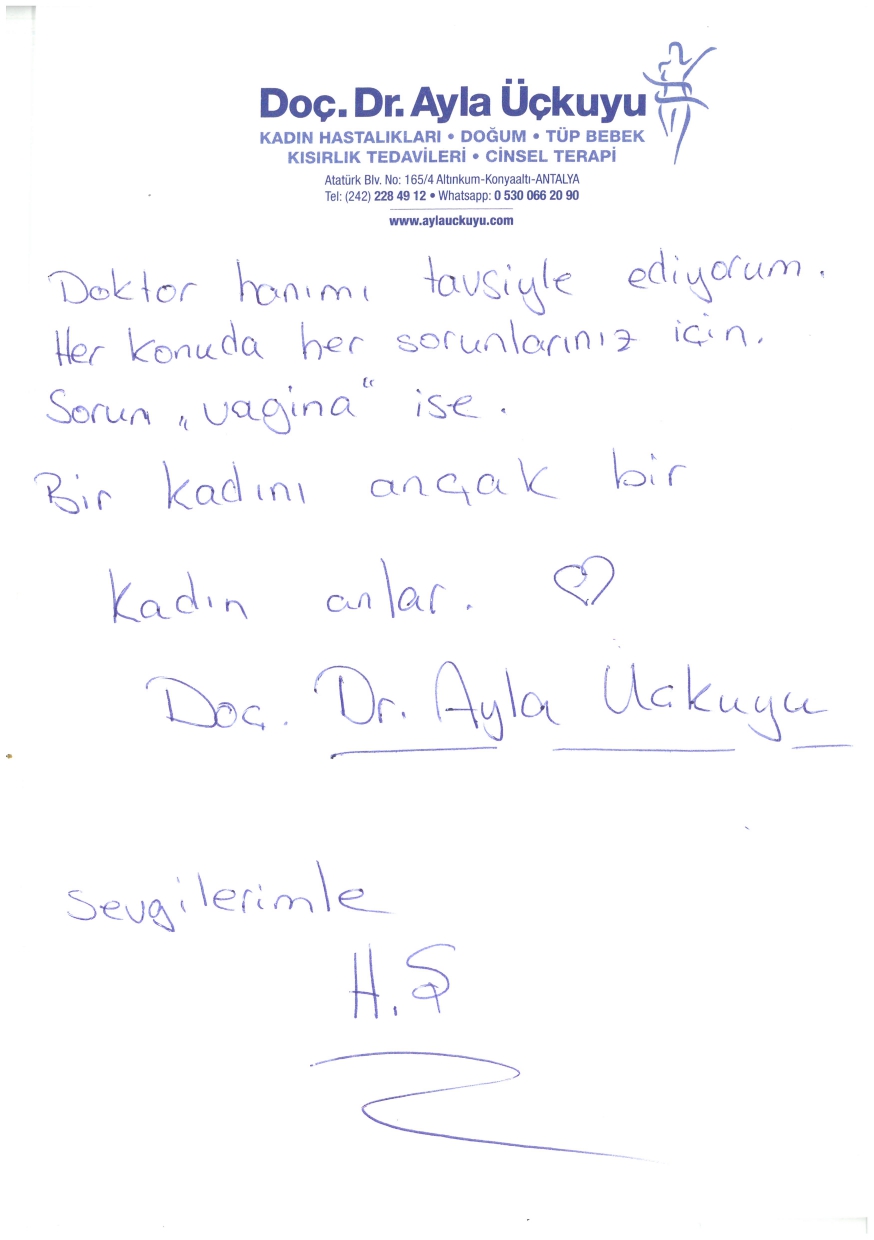 Doç. Dr. Ayla Üçkuyu
KADIN HASTALIKLARI • DOĞUM • TÜP BEBEK
KISIRLIK TEDAVİLERİ • CİNSEL TERAPİ
Atatürk Blv. No: 165/4 Altınkum-Konyaaltı-ANTALYA
Tel: (242) 228 49 12 • Whatsapp: 0 530 066 20 90
www.aylauckuyu.com
Doktor hanımı tavsiyle ediyorum.
Her konuda her sorunlarınız için.
Sorun „vagina“ ise.
Bir kadını ançak bir
kadın anlar. ♡
Doç. Dr. Ayla Uçkuyu
sevgilerimle
H.Ş